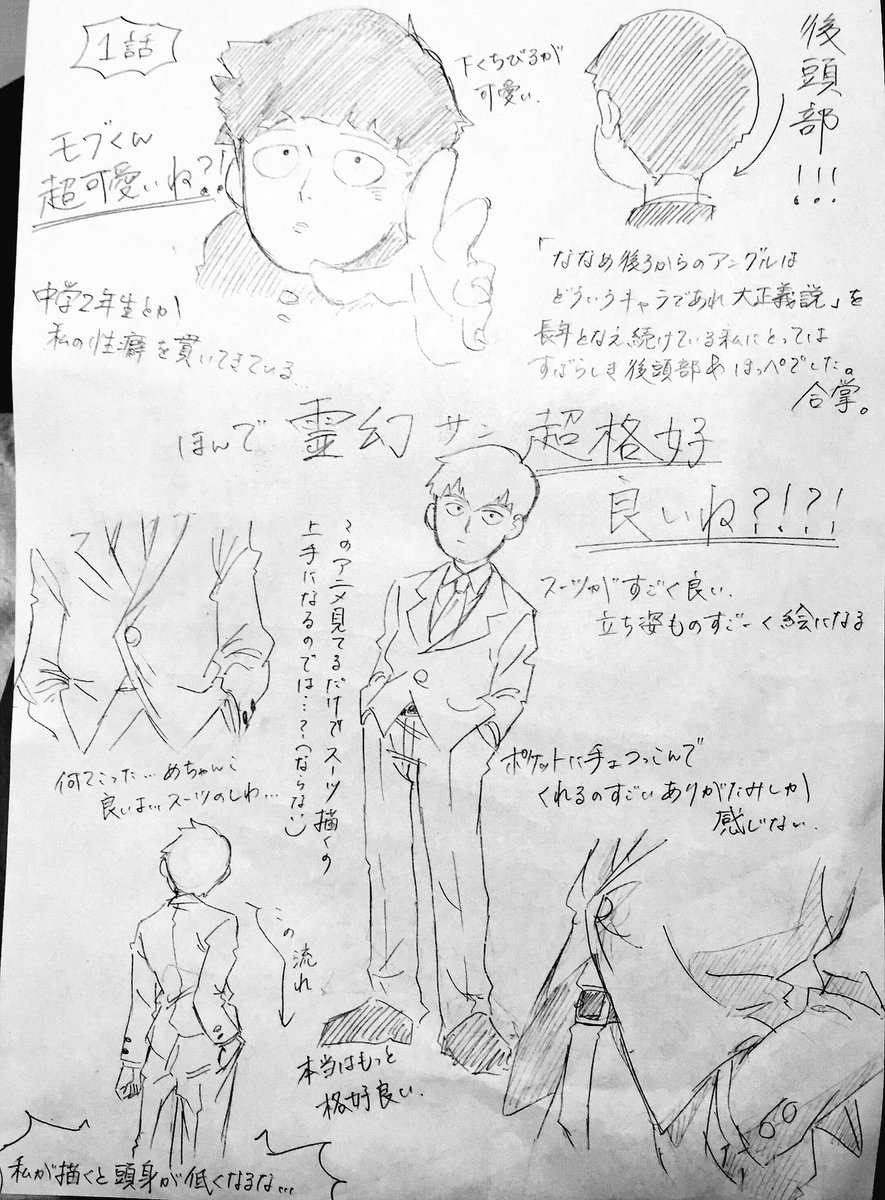 1話
モブくん
超可愛いね?!
下くちびるが
可愛い.
後頭部!!!
中学2年生とか
私の性癖を貫いてきている…
「ななめ後ろからのアングルは
どういうキャラであれ大正義説」を
長年となえ続けている私にとっては
すばらしき後頭部&ほっぺでした。
合掌。
ほんで霊幻サン超格好
良いね?!?!
スーツがすごく良い.
立ち姿ものすごーく絵になる
このアニメ見てるだけでスーツ描くの
上手になるのでは…?(ならない)
何てこった…めちゃんこ
良いよ…スーツのしわ…
ポケットに手ェつっこんで
くれるのすごいありがたみしか
感じない.
この流れ
本当はもっと
格好良い.
私が描くと頭身が低くなるな…